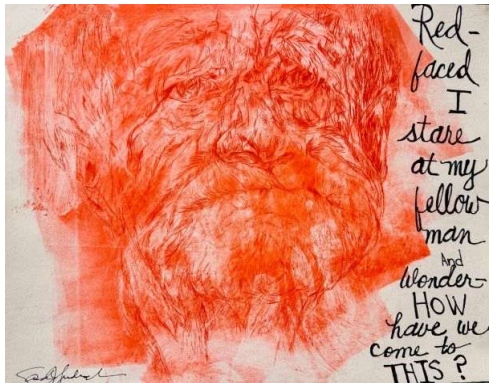 Red-
faced
I
stare
at my
fellow
man
And
Wonder-
HOW
have we
come to
THIS?